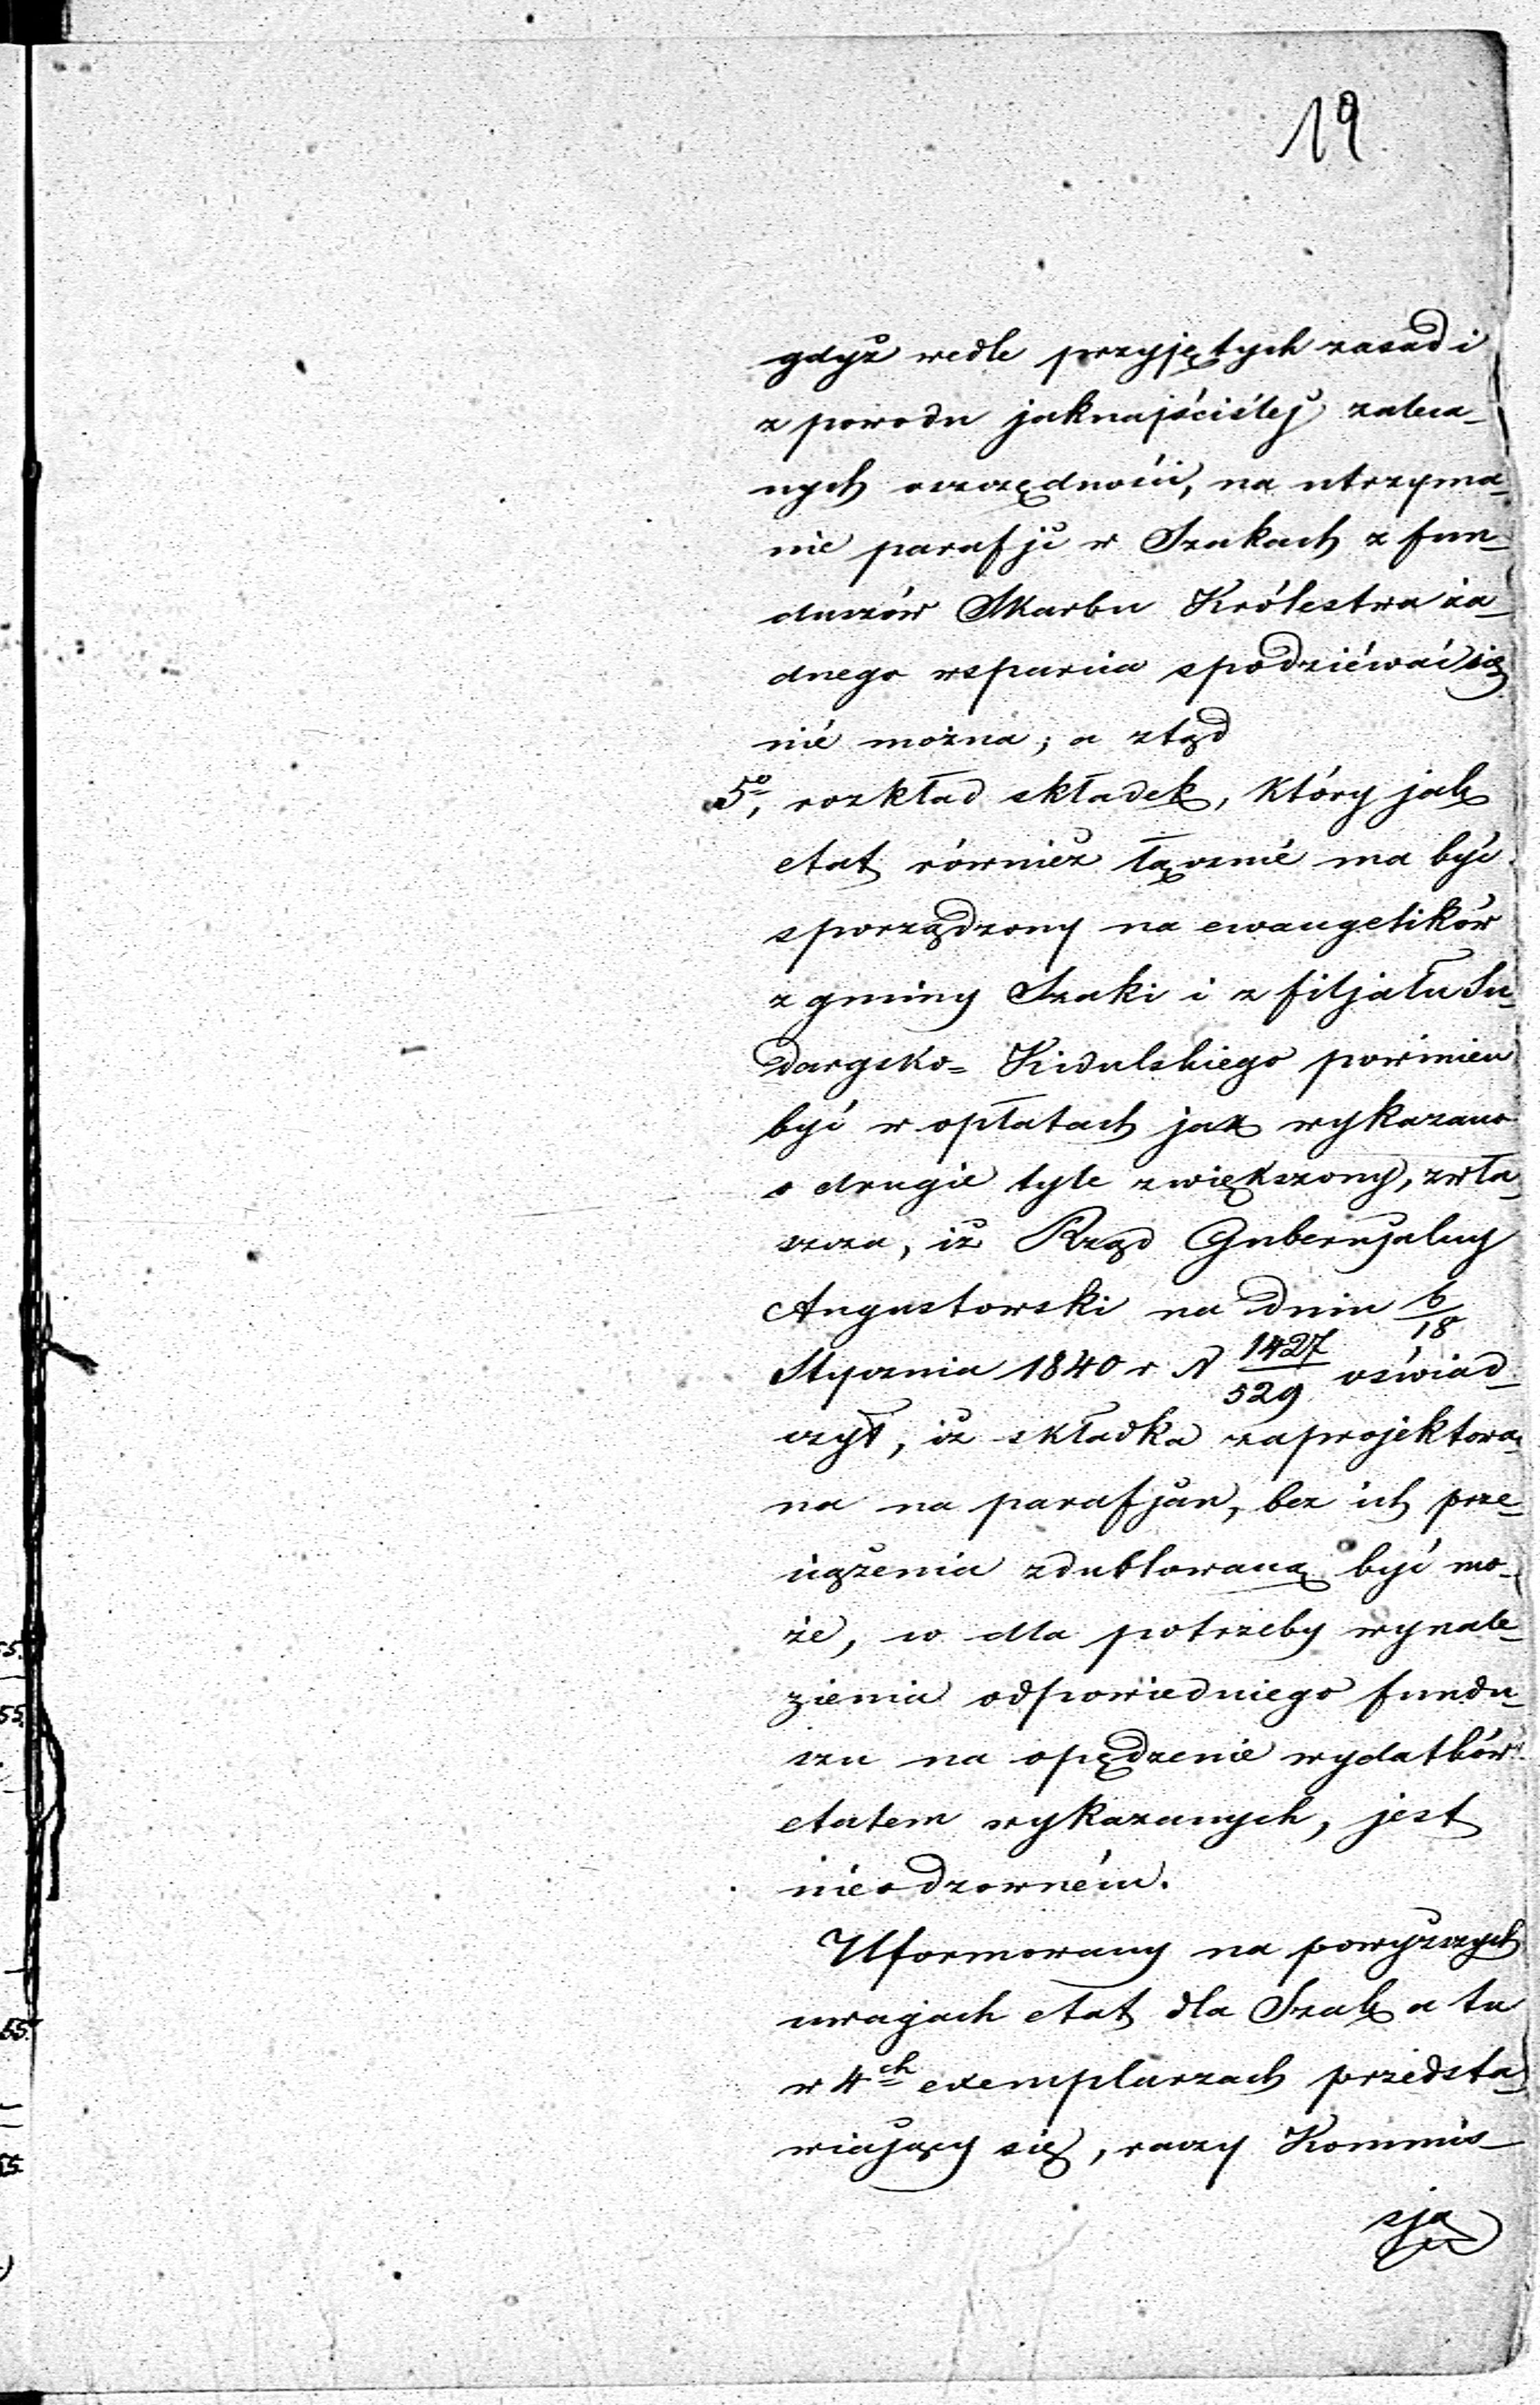 19
gdyż wedle przyjętych zasad i
z powodu jaknajściślej zaleca-
nych oszczędności, na utrzyma-
nie parafji w Szakach z fun-
duszów Skarbu Królestwa ża-
dnego wsparcia spodziéwać się
nié można; a ztąd
5º, rozkład składek, który jak
etat również łącznié ma być
sporządzony na ewangelików
z gminy Szaki i z filjału Su-
dargsko-Kidulskiego powinien
być w opłatach jak wykazano
o drugie tyle zwiększony, zwła-
szcza, iż Rząd Gubernjalny
Augustowski na dniu 6/18
Stycznia 1840 r N 1427/529 oświad-
czył, iż składka zaprojektowa-
na na parafjan, bez ich prze-
ciążenia zdublowaną być mo-
że, co dla potrzeby wynale-
zienia odpowiedniego fundu-
szu na opędzenie wydatków
etatem wykazanych, jest
nieodzowném.
Uformowany na powyższych
uwagach etat dla Szak a tu
w 4ch exemplarzach przedsta-
wiający się, raczy Kommis-
sja